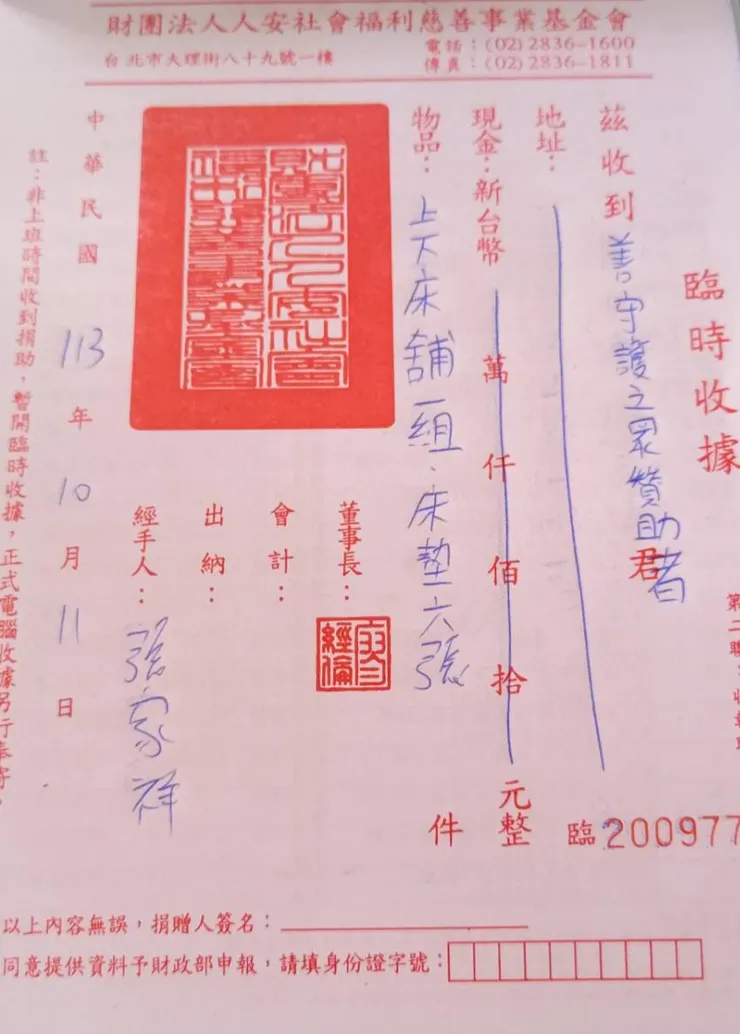 財團法人人安社會福利慈善事業基金會
台北市大理街八十九號一樓
電話：(02)2836-1600
傳真：(02)2836-1811
臨時收據
茲收到 善守護之眾贊助者 君
地址：
現金：新台幣 萬 仟 佰 拾 元整
物品：上下床舖一組、床墊六張 件
董事長：
會計：
出納：
經手人：張家祥
中華民國 113 年 10 月 11 日
註：非上班時間收到捐助，暫開臨時收據，正式電腦收據另行奉寄。
臨 200977
以上內容無誤，捐贈人簽名：
同意提供資料予財政部申報，請填身份證字號：